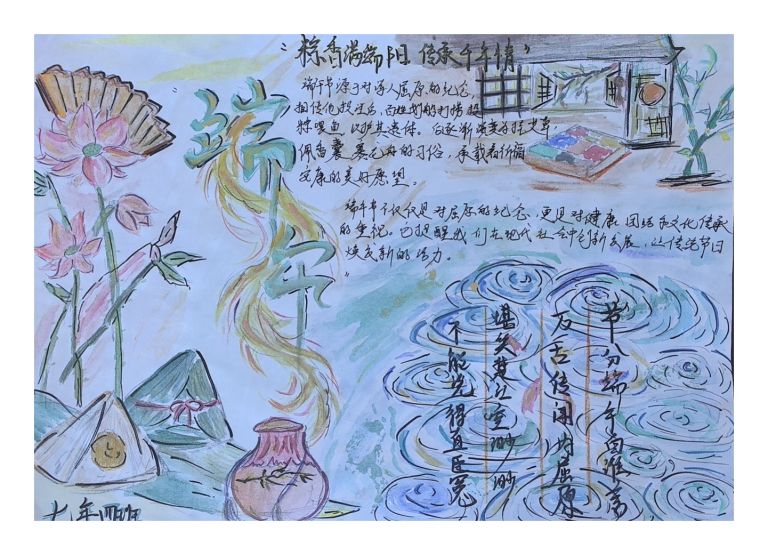 "粽香满端阳 传承千年情"
端午节源于对诗人屈原的纪念,
相传他投江后,百姓划船打捞投
粽喂鱼以护其遗体。后逐渐演变为挂艾草
佩香囊 赛龙舟的习俗,承载着祈福
安康的美好愿望。
端午节不仅仅是对屈原的纪念,更是对健康 团结和文化传承
的重视。它提醒我们在现代社会中创新发展,让传统节日
焕发新的活力。
端午
节分端午自谁言
万古传闻为屈原
堪笑楚江空渺渺
不能洗得直臣冤
七年四班